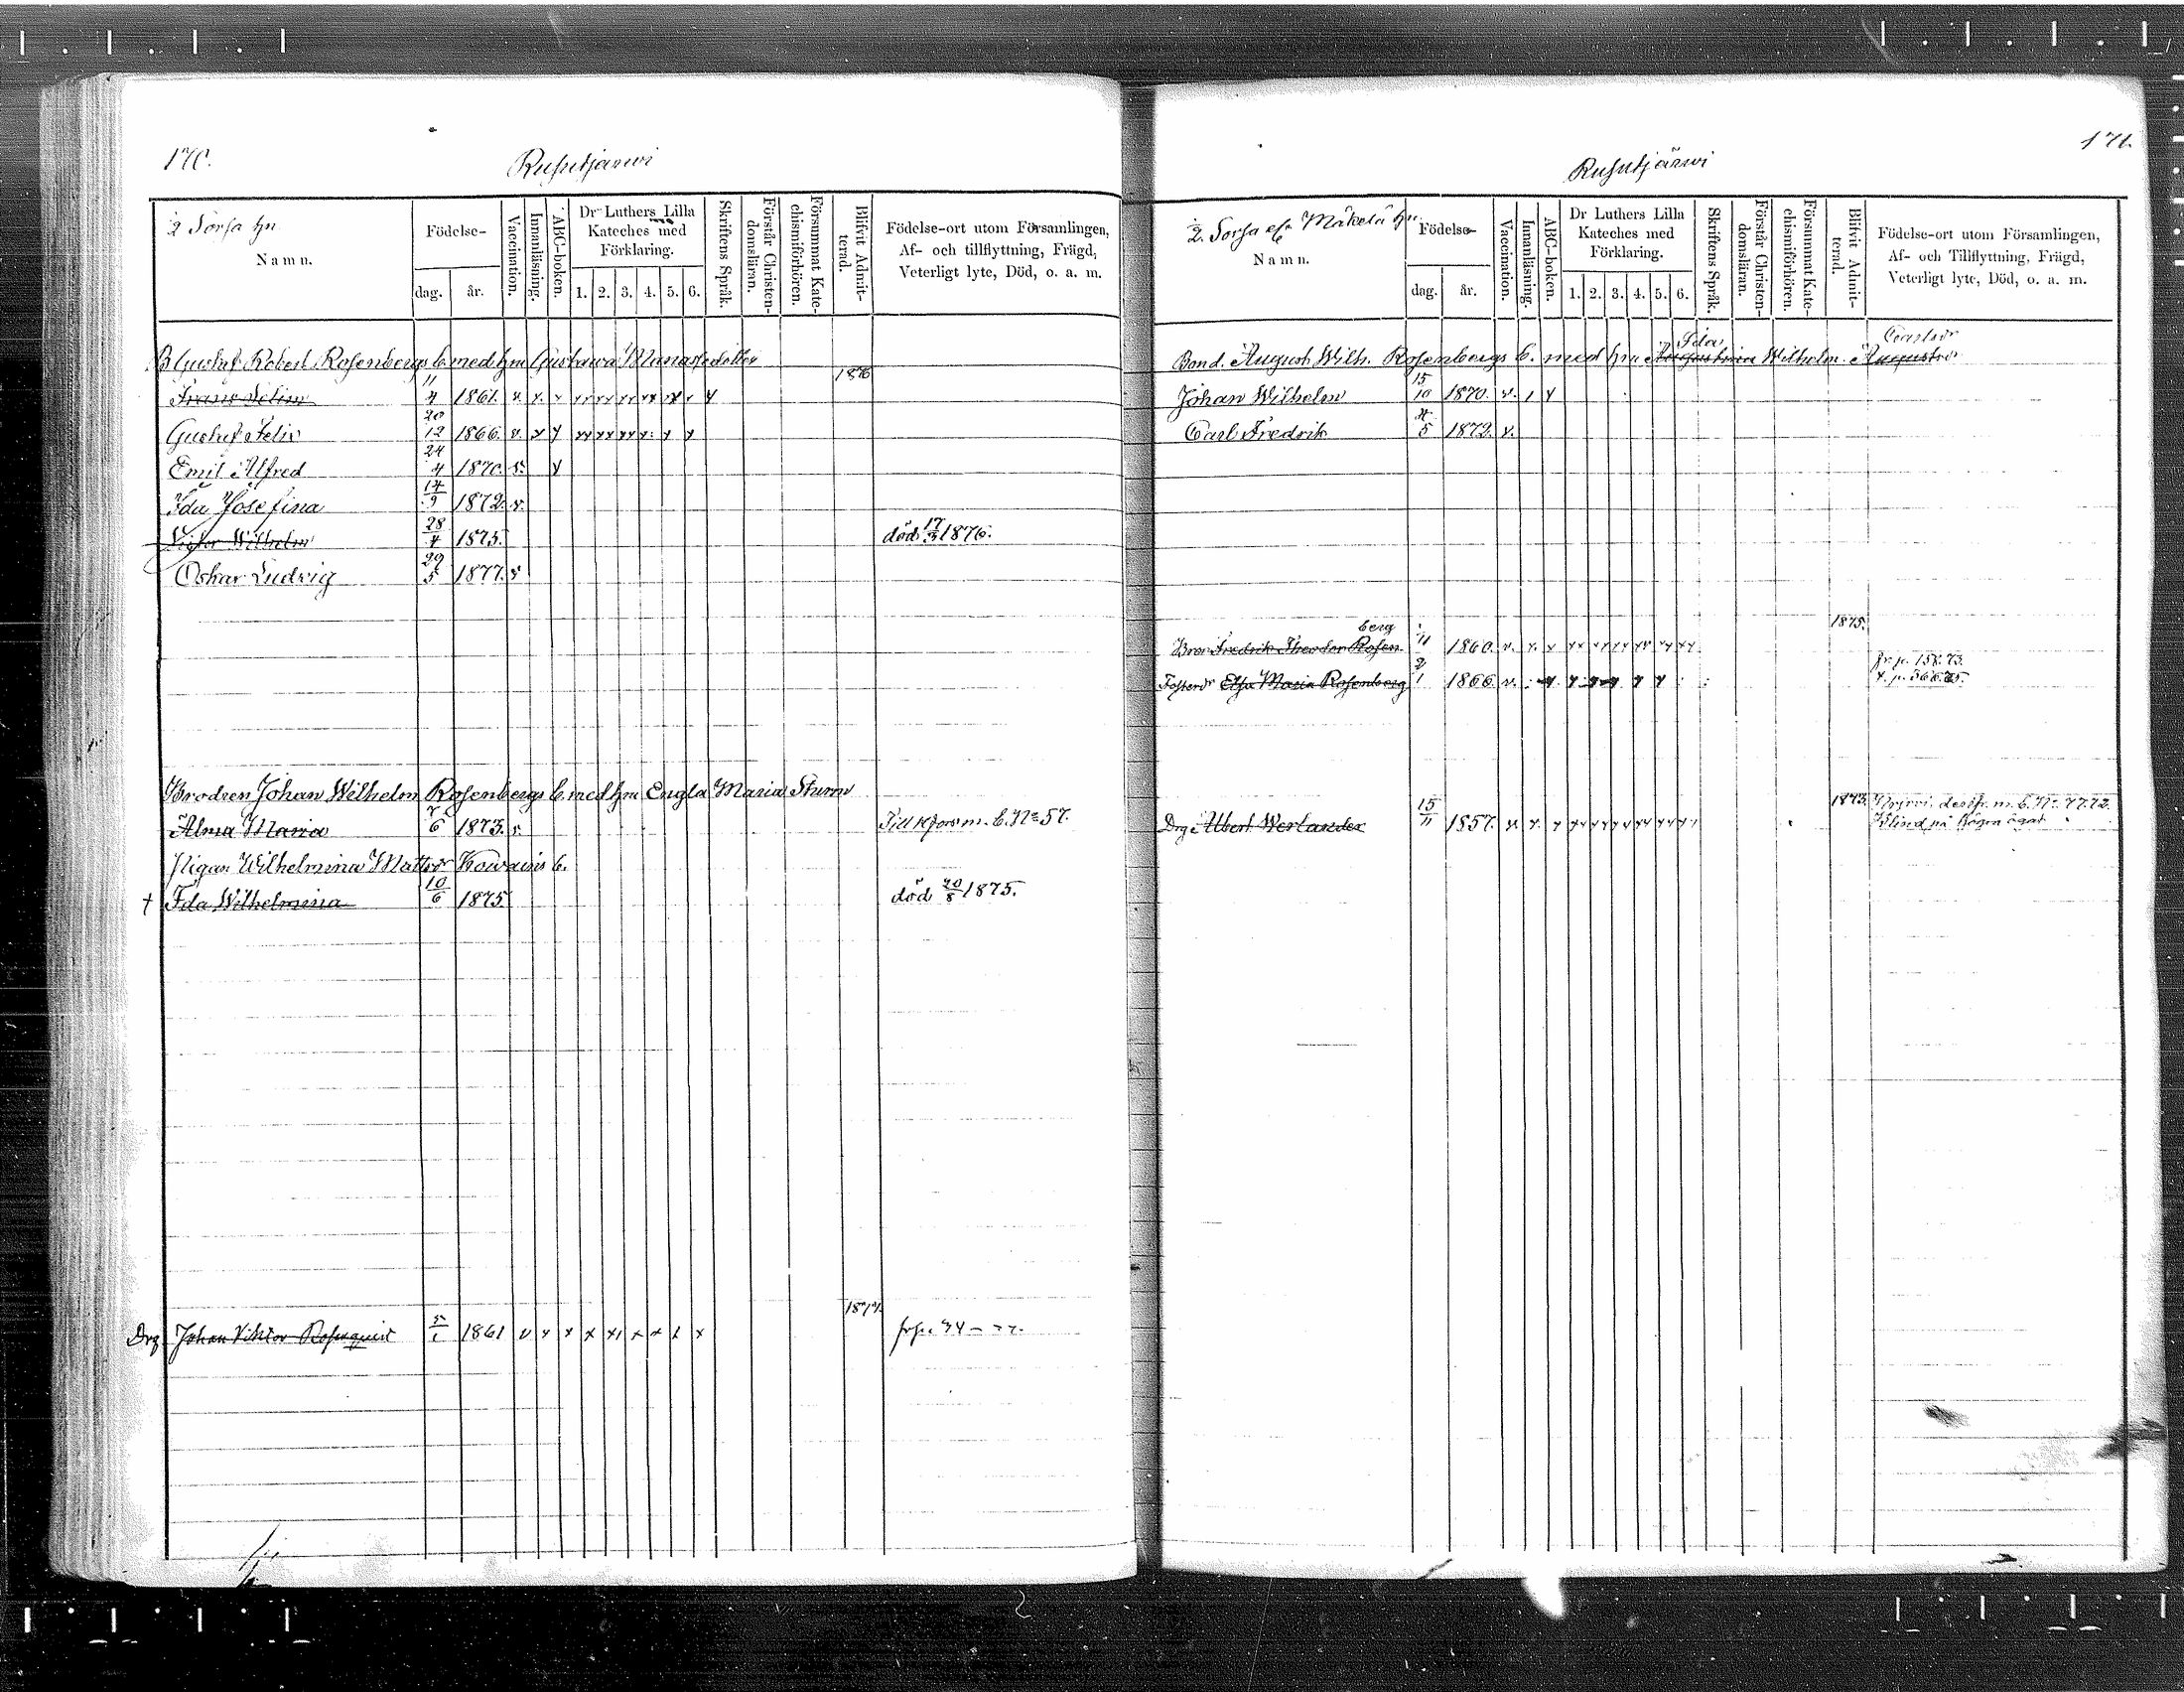 170.
Rusutjärwi
2 Sorsa hn
Namn.
Födelse-
dag.
år.
Vaccination.
Innanläsning.
ABC-boken.
Dr Luthers Lilla
Kateches med
Förklaring.
1. 2. 3. 4. 5. 6.
Skriftens Språk.
Förstår Christen-
domsläran.
Försummat Kate-
chismiförhören.
Blifvit Admit-
terad.
Födelse-ort utom Församlingen,
Af- och tillflyttning, Frägd,
Veterligt lyte, Död, o. a. m.
B Gustaf Robert Rosenbergs b. med hu Gustawa Manassedotter
Frans Selim 11/4 1861. v. 1876
Gustaf Felix 20/12 1866. v.
Emil Alfred 24/4 1870. v.
Ida Josefina 14/9 1872. v.
Victor Wilhelm 28/4 1875. död 17/3 1876.
Oskar Ludvig 29/5 1877. v
Brodren Johan Wilhelm Rosenbergs b. med hu Engla Maria Sturm
Alma Maria 7/6 1873. v. Till Hfors m. b. No 57.
Pigan Wilhelmina Mattsdr Kowains b.
† Ida Wilhelmina 10/6 1875 död 20/8 1875.
Drg Johan Viktor Rosenqvist 5/1 1861 v 1877.
171.
Rusutjärwi
2. Sorsa e/r Mäkelä hn.
Namn.
Födelse-
dag.
år.
Vaccination.
Innanläsning.
ABC-boken.
Dr Luthers Lilla
Kateches med
Förklaring.
1. 2. 3. 4. 5. 6.
Skriftens Språk.
Förstår Christen-
domsläran.
Försummat Kate-
chismiförhören.
Blifvit Admit-
terad.
Födelse-ort utom Församlingen,
Af- och Tillflyttning, Frägd,
Veterligt lyte, Död, o. a. m.
Ida Carlsdr
Bond. August Wilh. Rosenbergs b. med hu Augustina Wilhelm. Augustdr
Johan Wilhelm 15/10 1870. v.
Carl Fredrik 4/5 1872. v.
berg 1875.
Bror Fredrik Theodor Rosen 11 1860. v.
fr. p. 158. 73.
Fosterdr Elsa Maria Rosenberg 2/1 1866 v.
Drg Albert Werlander 15/11 1857. v. 1873.
Blind på högra ögat